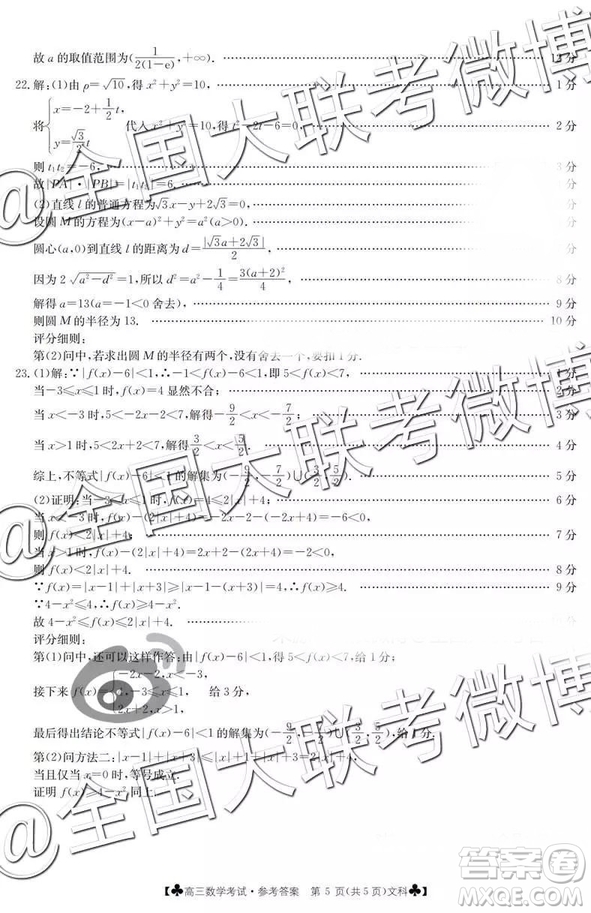 故 a 的取值范围为(1/(2(1-e)),+∞). 12 分
22.解:(1)由 ρ=√10,得 x²+y²=10,
将{x=-2+1/2 t, y=√3/2 t 代入 x²+y²=10,得 t²-2t-6=0, 2 分
则 t₁t₂=-6, 3 分
故|PA|·|PB|=|t₁t₂|=6.
(2)直线 l 的普通方程为√3x-y+2√3=0,
设圆 M 的方程为(x-a)²+y²=a²(a>0).
圆心(a,0)到直线 l 的距离为 d=|√3a+2√3|/2,
因为 2√(a²-d²)=1,所以 d²=a²-1/4=3(a+2)²/4, 8 分
解得 a=13(a=-1<0 舍去), 9 分
则圆 M 的半径为 13. 10 分
评分细则:
第(2)问中,若求出圆 M 的半径有两个,没有舍去一个,要扣 1 分.
23.(1)解:∵|f(x)-6|<1,∴-1<f(x)-6<1,即 5<f(x)<7, 1 分
当-3≤x≤1 时,f(x)=4 显然不合; 2 分
当 x<-3 时,5<-2x-2<7,解得-9/2<x<-7/2; 3 分
当 x>1 时,5<2x+2<7,解得3/2<x<5/2. 4 分
综上,不等式|f(x)-6|<1 的解集为(-9/2,-7/2)∪(3/2,5/2). 5 分
(2)证明:当-3≤x≤1 时,f(x)=4≤2|x|+4; 6 分
当 x<-3 时,f(x)-(2|x|+4)=-2x-2-(-2x+4)=-6<0,
则 f(x)<2|x|+4; 7 分
当 x>1 时,f(x)-(2|x|+4)=2x+2-(2x+4)=-2<0,
则 f(x)<2|x|+4. 8 分
∵f(x)=|x-1|+|x+3|≥|x-1-(x+3)|=4,∴f(x)≥4. 9 分
∵4-x²≤4,∴f(x)≥4-x².
故 4-x²≤f(x)≤2|x|+4.
评分细则:
第(1)问中,还可以这样作答:由|f(x)-6|<1,得 5<f(x)<7,给 1 分;
接下来 f(x)={-2x-2,x<-3, 4,-3≤x≤1, 2x+2,x>1, 给 3 分,
最后得出结论不等式|f(x)-6|<1 的解集为(-9/2,-7/2)∪(3/2,5/2),给 1 分.
第(2)问方法二:|x-1|+|x+3|≤|x|+1+|x|+3=2|x|+4,
当且仅当 x=0 时,等号成立.
证明 f(x)≥4-x² 同上.
♣高三数学考试·参考答案 第 5 页(共 5 页)文科♣
@全国大联考微博
@全国大联考微博
@全国大联考微博
答案圈
MXQE.COM